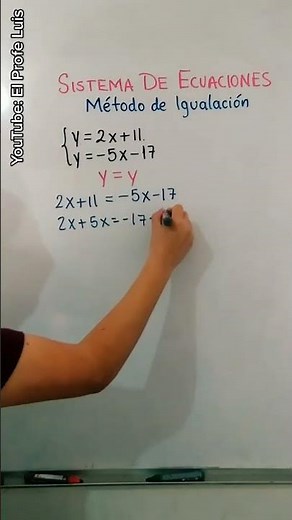 YouTube: El Profe Luis
SISTEMA DE ECUACIONES
Método de Igualación
y=2x+11
y=-5x-17
y=y
2x+11=-5x-17
2x+5x=-17-